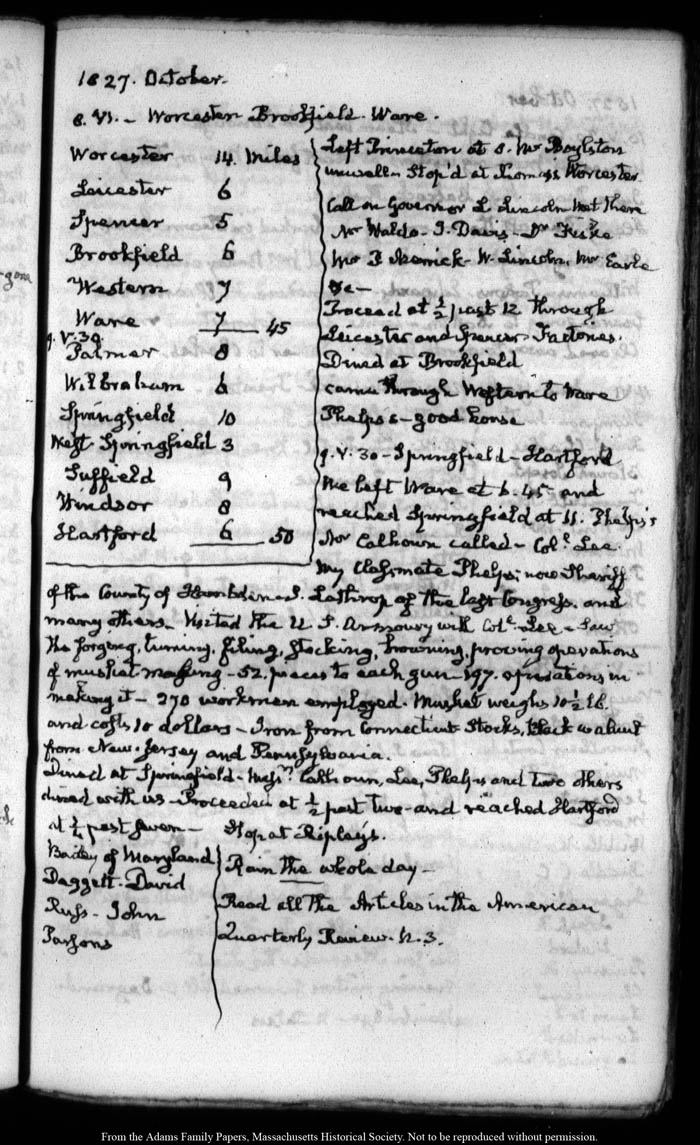 1827. October.
8. VI. - Worcester Brookfield. Ware.
Worcester 14 miles
Leicester 6
Spencer 5
Brookfield 6
Western 7
Ware 7 45
9. V:30.
Palmer 8
Wilbraham 6
Springfield 10
West-Springfield 3
Suffield 9
Windsor 8
Hartford 6 50
Left Princeton at 8. Mr Boylston
unwell - Stop'd at Thomas's Worcester.
Call on Governor L Lincoln. Met there
Mr Waldo - J. Davis - Dr Fiske
Mr Merrick - W. Lincoln, Mr Earle
&c -
Proceed at ½ past 12 through
Leicester and Spencer - Factories.
Dined at Brookfield
came through Western to Ware
Phelps's - good house
9. V. 30 - Springfield - Hartford
We left Ware at 6. 45 and
reached Springfield at 11. Phelps's
Mr Calhoun called - Coll. Lee.
My Classmate Phelps; now Sheriff
of the County of Hambden - S. Lathrop of the last Congress. and
many others - Visited the U. S. Armoury with Coll. Lee - Saw
the forging, turning, filing, stocking, browning, proving operations
of musket making - 52. pieces to each gun 197. operations in
making it - 270 workmen employed. Musket weighs 10½ lb.
and costs 10 dollars - Iron from Connecticut Stocks, black walnut
from New-Jersey and Pennsylvania.
Dined at Springfield - Messrs. Calhoun, Lee, Phelps and two others
dined with us - Proceeded at ½ past two - and reached Hartford
at ¼ past seven - Stop at Ripley's.
Bailey of Maryland
Daggett - David
Russ - John
Parsons
Rain the whole day -
Read all the Articles in the American
Quarterly Review. N. 3.
From the Adams Family Papers, Massachusetts Historical Society. Not to be reproduced without permission.